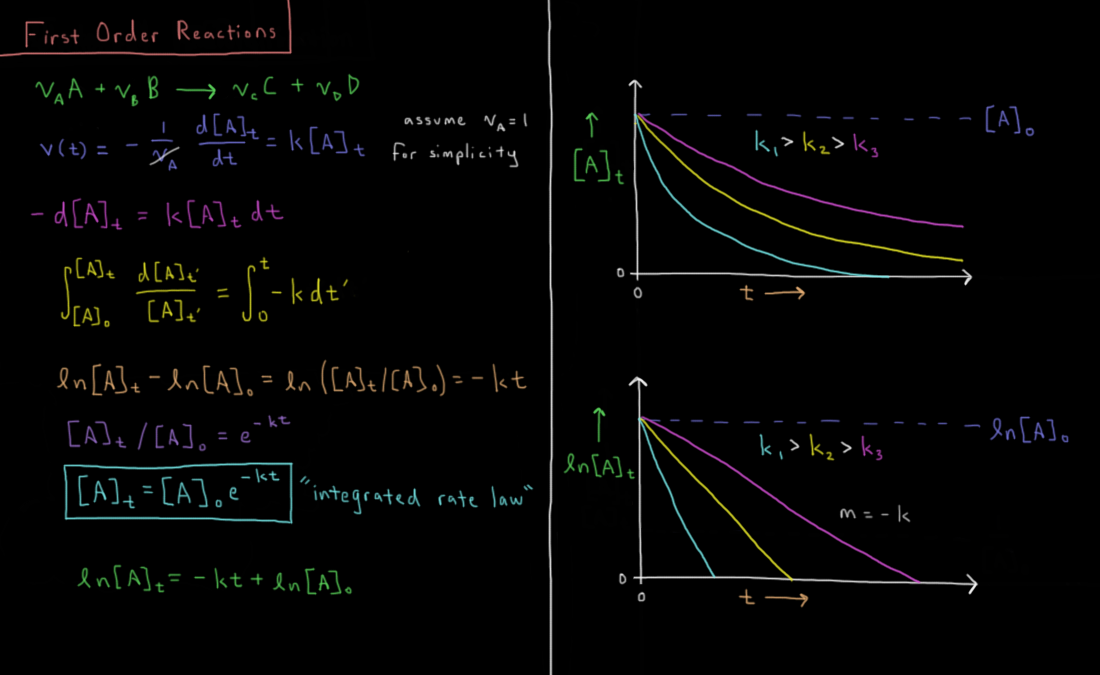 First Order Reactions
ν_A A + ν_B B ⟶ ν_C C + ν_D D
v(t) = - 1/ν_A d[A]_t/dt = k[A]_t
assume ν_A = 1
for simplicity
- d[A]_t = k[A]_t dt
∫_{[A]_0}^{[A]_t} d[A]_t'/[A]_t' = ∫_0^t -k dt'
ln[A]_t - ln[A]_0 = ln([A]_t/[A]_0) = -kt
[A]_t / [A]_0 = e^{-kt}
[A]_t = [A]_0 e^{-kt} "integrated rate law"
ln[A]_t = -kt + ln[A]_0
[A]_0
k_1 > k_2 > k_3
↑
[A]_t
0
0
t ⟶
ln[A]_0
k_1 > k_2 > k_3
↑
ln[A]_t
m = -k
0
0
t ⟶